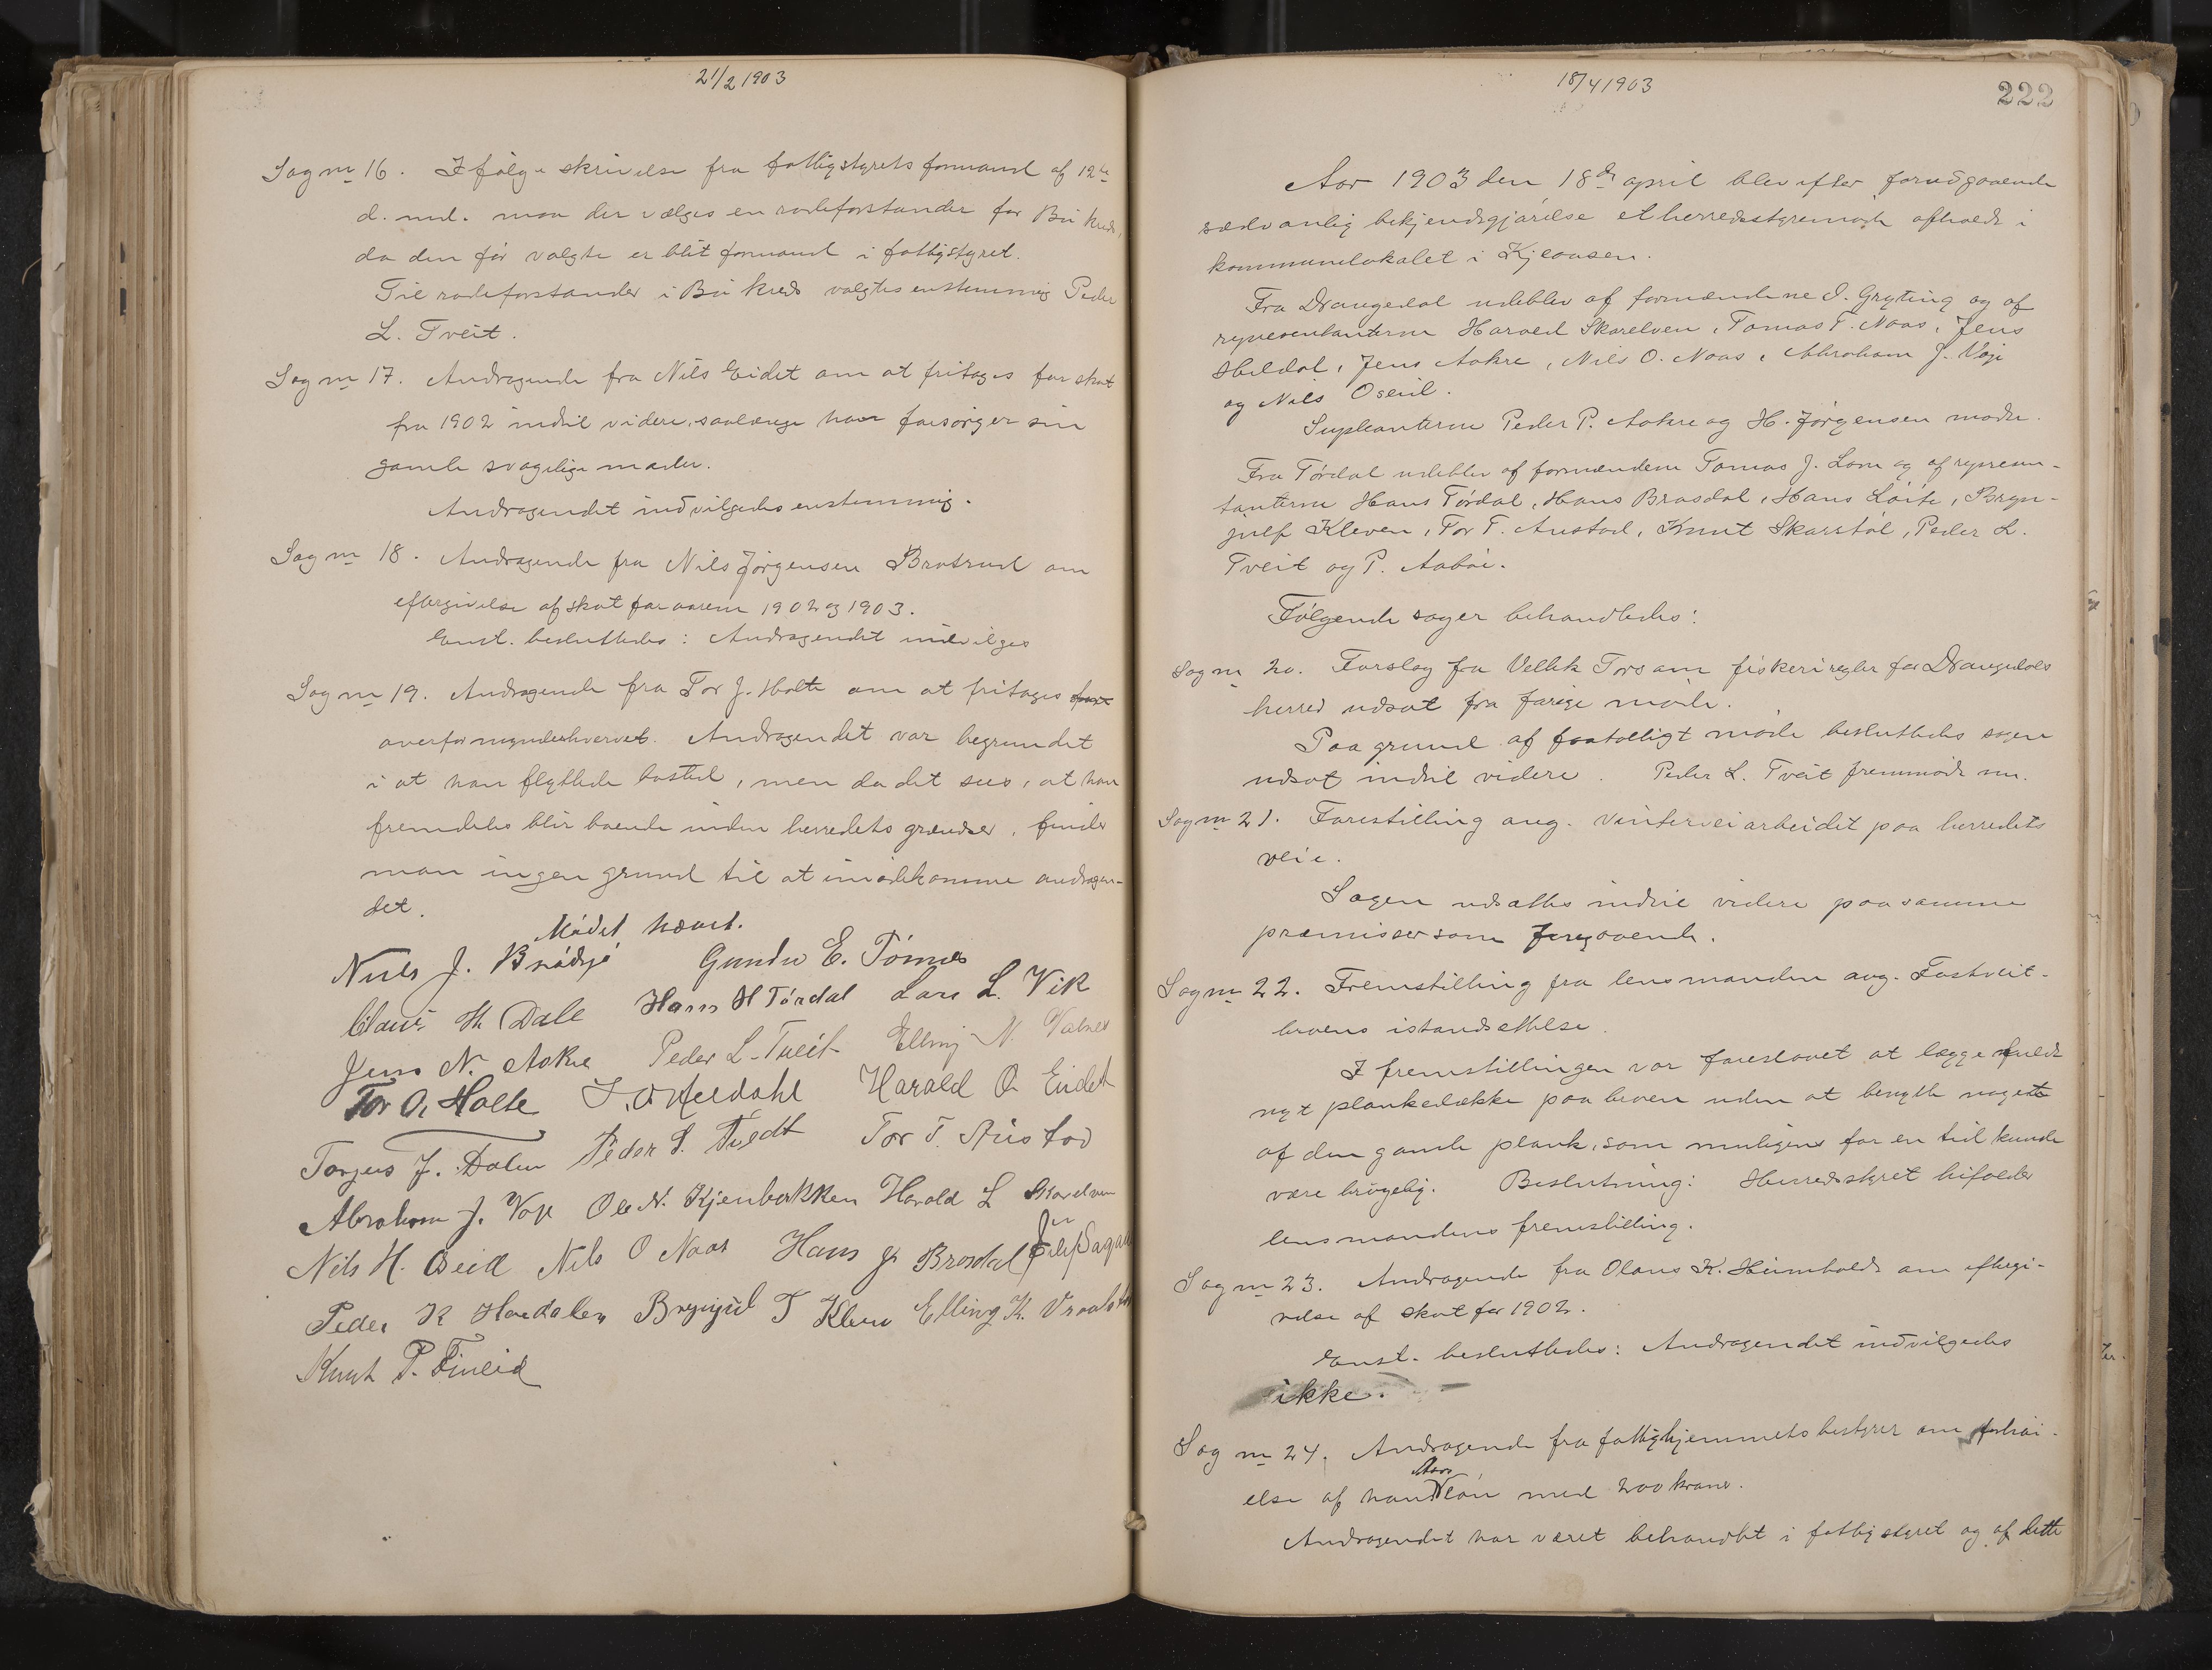 21/2 1903
Sag nr 16. Ifølge skrivelse fra fattigstyrets formand af 12te
d. md. maa der vælges en rodeforstander for Bø kreds,
da den før valgte er blit formand i fattigstyret.
Til rodeforstander i Bø kreds valgtes enstemmig Peder
L. Tveit.
Sag nr 17. Andragende fra Nils Eidet om at fritages for skat
fra 1902 indtil videre, saalænge han forsørger sin
gamle svagelige moder.
Andragendet indvilgedes enstemmig.
Sag nr 18. Andragende fra Nils Jørgensen Brøtrud om
eftergivelse af skat for aarene 1902 og 1903.
Enst. besluttedes: Andragendet indvilges
Sag nr 19. Andragende fra Tor J. Holte om at fritages for
overformynderhvervet. Andragendet var begrundet
i at han flyttede bosted, men da det sees, at han
fremdeles blir boende inden herredets grændser, finder
man ingen grund til at imødekomme andragen-
det.
Mødet hævet.
Nils J. Brødsjø Gunder E. Tømnes
Claus H. Dale Hans H Tørdal Lars L. Vik
Jens N. Aakre Peder L. Tveit Elling N.
Tor O. Holte J. O. Heldahl Harald O. Eidet
Torjus J. Dalen Peder S. Tvedt Tor T. Austad
Abraham J. Voje Ole N. Kjenbekken Harald L Skarelven
Nils H. Oseid Nils O Naas Hans Jr Brosdal
Peder K Hoedalen Brynjul T Kleven Elling K.
Knut P.
18/4 1903
222
Aar 1903 den 18de april blev efter forudgaaende
sædvanlig bekjendtgjørelse et herredsstyremøde afholdt i
kommunelokalet i Kjeousen.
Fra Drangedal udeblev af formændene O. Gryting og af
repræsentanterne Harald Skarelven, Tomas T. Naas, Jens
Heldal, Jens Aakre, Nils O. Naas, Abraham J. Voje
og Nils Oseid.
Supleanterne Peder P. Aakre og H. Jørgensen mødte.
Fra Tørdal udeblev af formændene Tomas J. Lom og af repræsen-
tanterne Hans Tørdal, Hans Brosdal, Hans Løite, Bryn-
julf Kleven, Tor T. Austad, Knut Skarstøl, Peder L.
Tveit og P. Aabøe.
Følgende sager behandledes:
Sag nr 20. Forslag fra Vellek Tors om fiskeriregler for Drangedals
herred udsat fra forige møde.
Paa grund af faatalligt møde besluttedes sagen
udsat indtil videre. Peder L. Tveit fremmødt nu.
Sag nr 21. Forestilling ang. vinterveiarbeidet paa herredets
veie.
Sagen udsættes indtil videre paa samme
præmisser som foregaaende.
Sag nr 22. Fremstilling fra lensmanden ang. Tostveit-
broens istandsættelse.
I fremstillingen var foreslaaet at lægge fuldt
nyt plankedække paa broen uden at benytte noget
af den gamle plank, som muligens for en tid kunde
være brugelig. Beslutning: Herredsstyret bifalder
lensmandens fremstilling.
Sag nr 23. Andragende fra Olaus K. Heimholdt om eftergi-
velse af skat for 1902.
Enst. besluttedes: Andragendet indvilgedes
ikke.
Sag nr 24. Andragende fra fattighjemmets bestyrer om forhøi-
else af hans Aars løn med 200 kroner.
Andragendet har været behandlet i fattigstyret og af dette